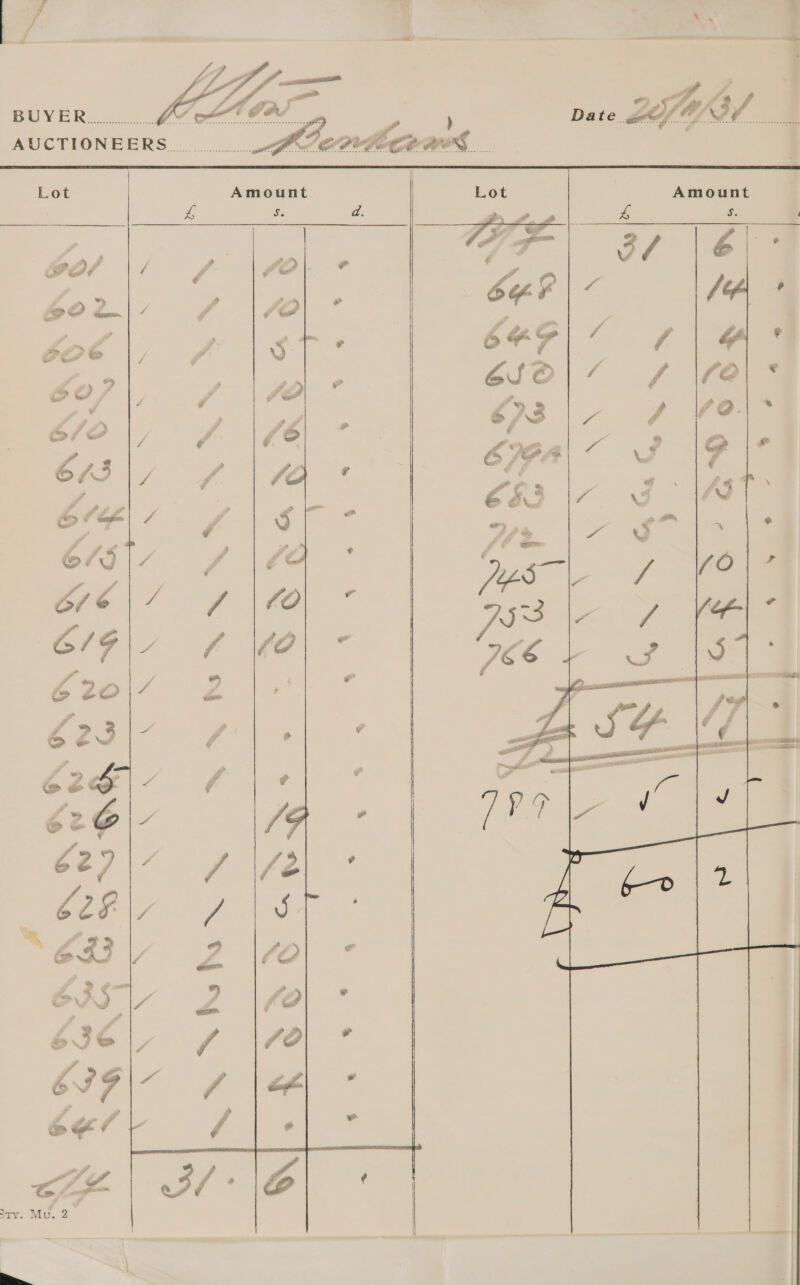 BUYER
Date
AUCTIONEERS
Lot Amount Lot Amount
£ s. d. £ s.
601 1 10 -
602 1 10 -
606 1 5 -
607 1 10 -
610 1 16 -
613 1 10 -
614 1 5 -
615 1 10 -
616 1 10 -
619 1 10 -
620 2 - -
623 1 - -
625 1 - -
626 19 -
627 1 12 -
628 1 5 -
633 2 10 -
635 2 10 -
636 1 10 -
639 1 4 -
641 1 - -
C/F 31 6 -
B/F 31 6 -
648 14 -
649 1 4 -
650 1 10 -
673 1 10 -
679A 3 9 -
683 3 15 -
712 5 - -
745 1 10 -
753 1 14 -
766 3 5 -
£ 54 17 -
799 5 5
£ 60 2
Sry. Mu. 2